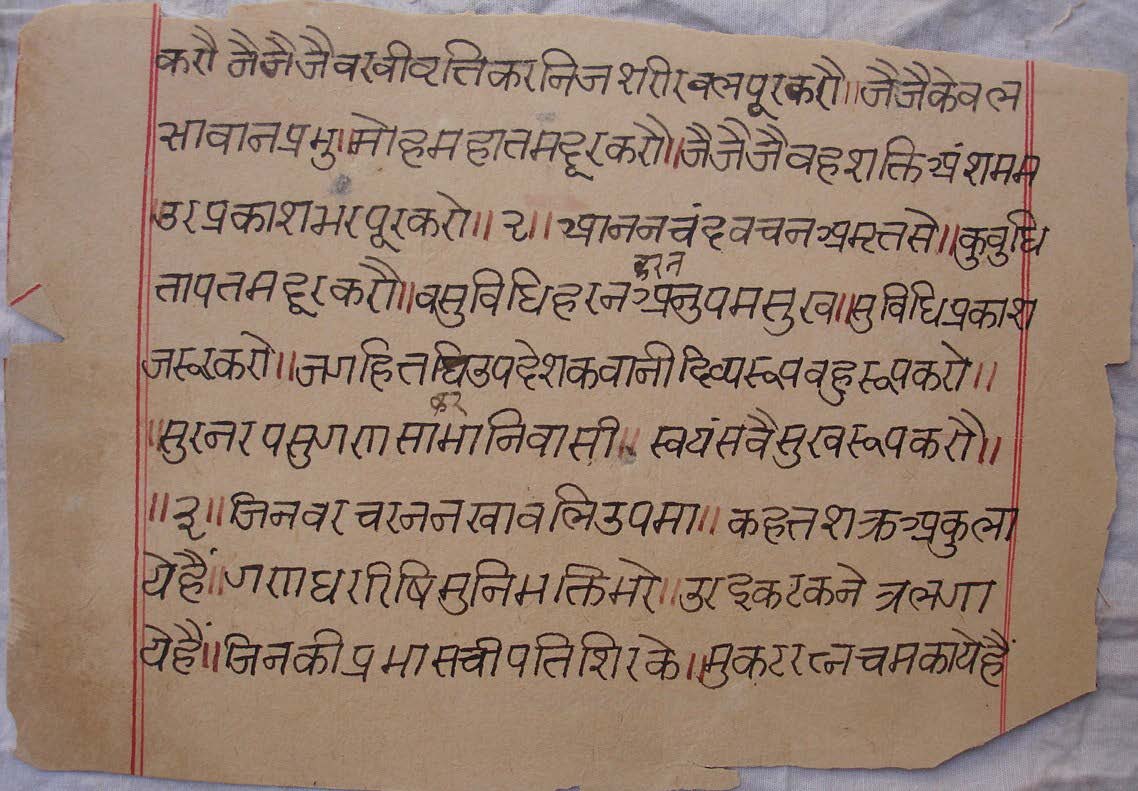 करौ जैजैजैवरवीर्यत्तिकरनिजशरीरवलपूरकरौ॥जैजैकेवल
सावानप्रभु॥मोहमहातमदूरकरौ॥जैजैजैवहशक्तिअंशमम
॥उरप्रकाशभरपूरकरो॥२॥आननचंदवचनअमृतसे॥कुवुधि
तापतमदूरकरौ॥वसुविधिहरनअनुपमसुख॥सुविधिप्रकाश
करत
जरूरकरो॥जगहितउपदेशकवानीदिव्यरूपवहुरूपकरो॥
कर
॥सुरनरपसुगणसामानिवासी॥स्वयंसवैसुखरूपकरौ॥
॥३॥जिनवरचरननखावलिउपमा॥कहतशक्रअकुला
येहैं॥गणधररिषिमुनिभक्तिभरे॥उरइकटकनेत्रलगा
येहैं॥जिनकीप्रभासचीपतिशिरके॥मुकटरत्नचमकायेहैं